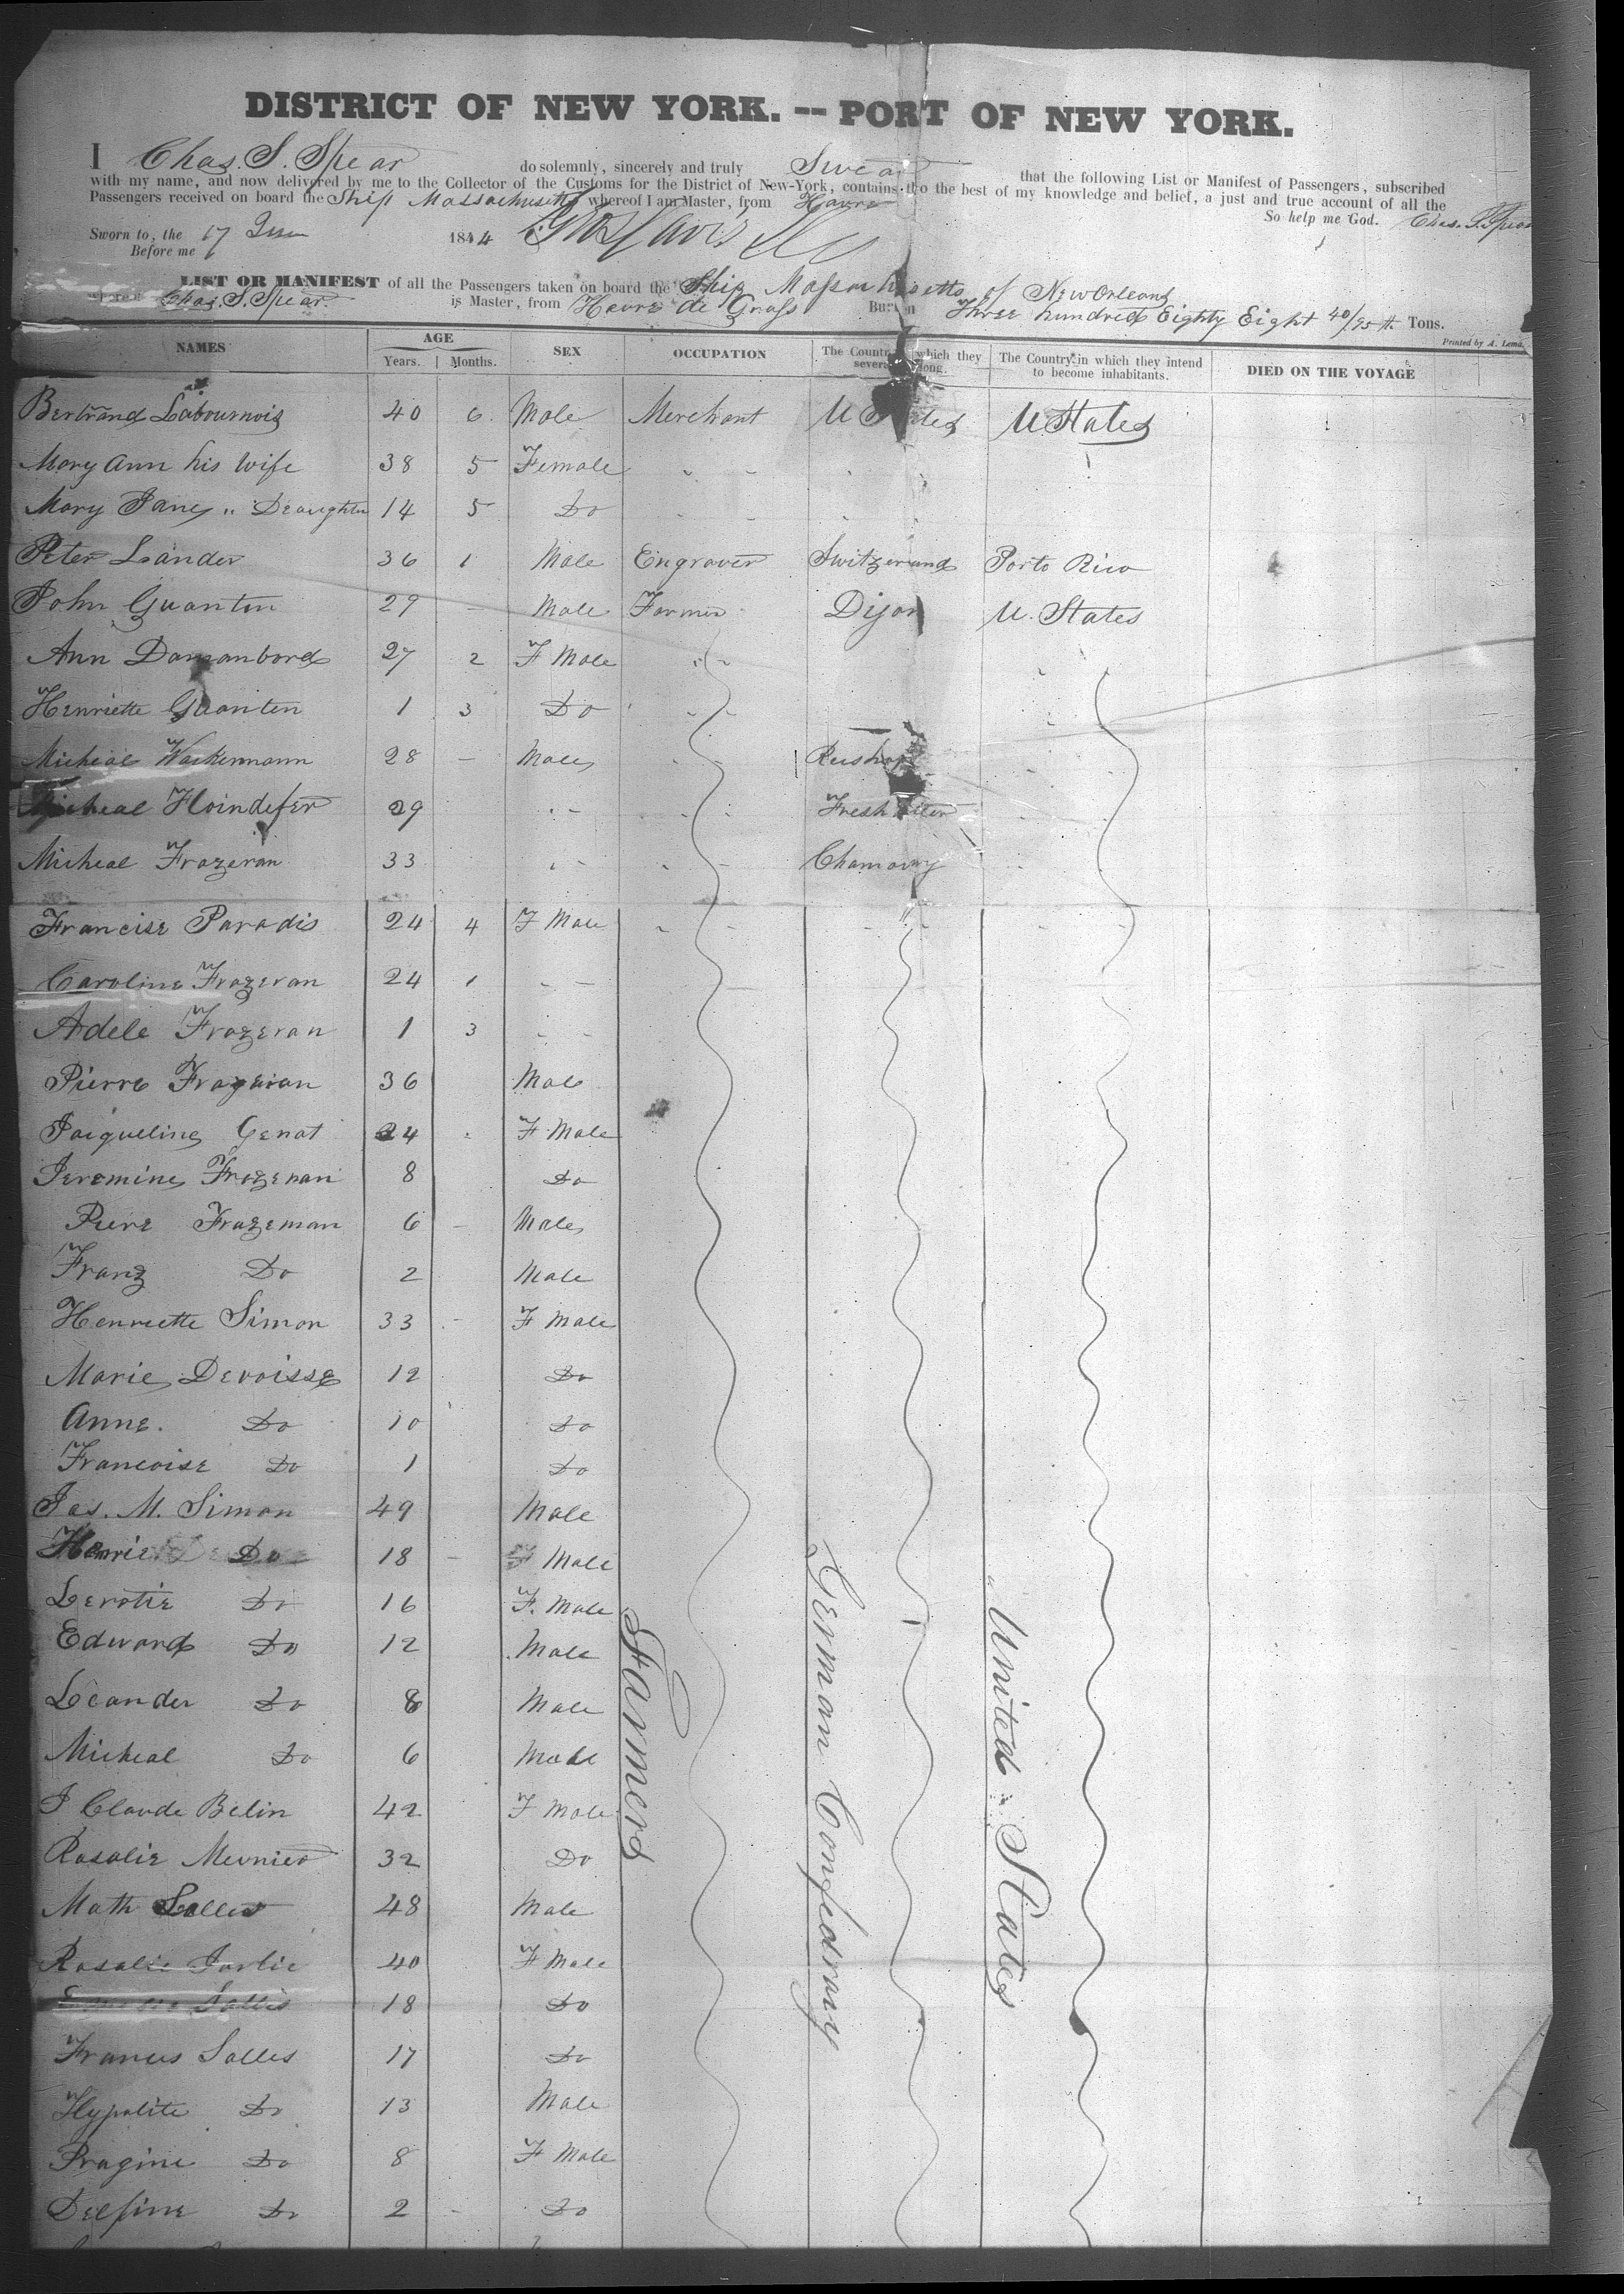 DISTRICT OF NEW YORK. -- PORT OF NEW YORK.
I Chas. S. Spear do solemnly, sincerely and truly Swear that the following List or Manifest of Passengers, subscribed
with my name, and now delivered by me to the Collector of the Customs for the District of New-York, contains to the best of my knowledge and belief, a just and true account of all the
Passengers received on board the Ship Massachusetts whereof I am Master, from Havre
So help me God. Chas. S. Spear
Sworn to, the 17 June 1844
Before me
LIST OR MANIFEST of all the Passengers taken on board the Ship Massachusetts of New Orleans
whereof Chas. S. Spear is Master, from Havre de Grass Burthen Three hundred Eighty Eight 40/95 th Tons.
Printed by A. Lema
NAMES AGE Years. Months. SEX OCCUPATION The Country which they severally belong. The Country in which they intend to become inhabitants. DIED ON THE VOYAGE
Bertrand Labournois 40 6 Male Merchant U States U. States
Mary Ann his Wife 38 5 Female " "
Mary Jane " Deaughter 14 5 Do " "
Peter Lander 36 1 Male Engraver Switzerland Porto Rico
John Guanten 29 - Male Farmer Dijon U. States
Ann Damanbord 27 2 F Male " "
Henriette Guanten 1 3 Do " "
Micheal Wackermann 28 - Male " "
Micheal Hoindefer 29 " " "
Micheal Frazeran 33 " " Chamovay
Francise Paradis 24 4 F Male " "
Caroline Frazeran 24 1 " "
Adele Frazeran 1 3 " "
Pierre Frazeran 36 Male
Jacqueline Genot 24 F Male
Jeremine Frazeman 8 Do
Piere Frazeman 6 - Male
Franz Do 2 Male
Henriette Simon 33 - F Male
Marie Devoisse 12 Do
Anne. Do 10 Do
Francoise Do 1 Do
Jas. M. Simon 49 Male
Henrie Do 18 - F Male
Lerotie Do 16 F. Male
Edward Do 12 Male
Leander Do 8 Male
Micheal Do 6 Male
J Claude Belin 42 F Male
Rosalie Meunier 32 Do
Math Salles 48 Male
Rosalie Jorlie 40 F Male
Sallis 18 Do
Frances Salles 17 Do
Hypolite Do 13 Male
Pragine Do 8 F Male
Delfine Do 2 - Do
Farmers
German Confedracy
United States